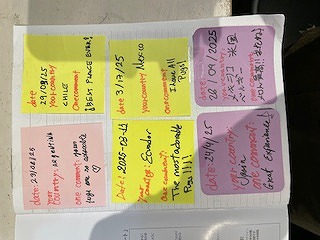 date
29/08/25
your country
CHILE
One comment
¡BEST PLACE EVER!
date
3/17/25
your country México
one comment:
I love All
Pugs!!
date
28/09/2025
your country
メキシコ 米国
date: 29/08/25
your
country: ARGENTINA
one comment: your
pugs are so adorable
♡
Date: 2025-03-22
Your
country: Ecuador
One comment:
The most adorable
Pugs!!!!
date: 24/9/25
your country:
Spain
one comment:
Great Experience!